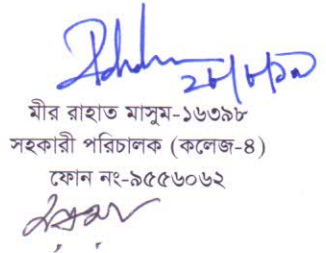 ২৮/৮/১৯
মীর রাহাত মাসুম-১৬৩৯৮
সহকারী পরিচালক (কলেজ-৪)
ফোন নং-৯৫৫৬০৬২